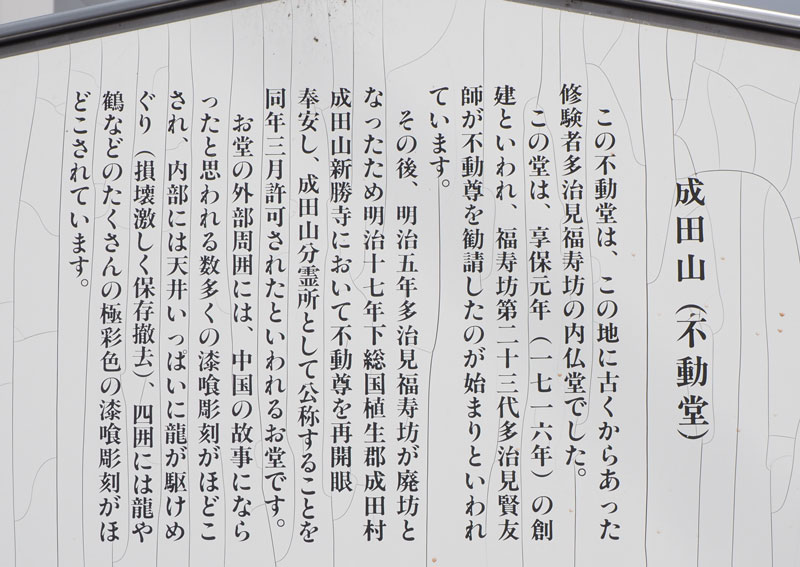 成田山（不動堂）
この不動堂は、この地に古くからあった
修験者多治見福寿坊の内仏堂でした。
この堂は、享保元年（一七一六年）の創
建といわれ、福寿坊第二十三代多治見賢友
師が不動尊を勧請したのが始まりといわれ
ています。
その後、明治五年多治見福寿坊が廃坊と
なったため明治十七年下総国植生郡成田村
成田山新勝寺において不動尊を再開眼
奉安し、成田山分霊所として公称することを
同年三月許可されたといわれるお堂です。
お堂の外部周囲には、中国の故事になら
ったと思われる数多くの漆喰彫刻がほどこ
され、内部には天井いっぱいに龍が駆けめ
ぐり（損壊激しく保存撤去）、四囲には龍や
鶴などのたくさんの極彩色の漆喰彫刻がほ
どこされています。